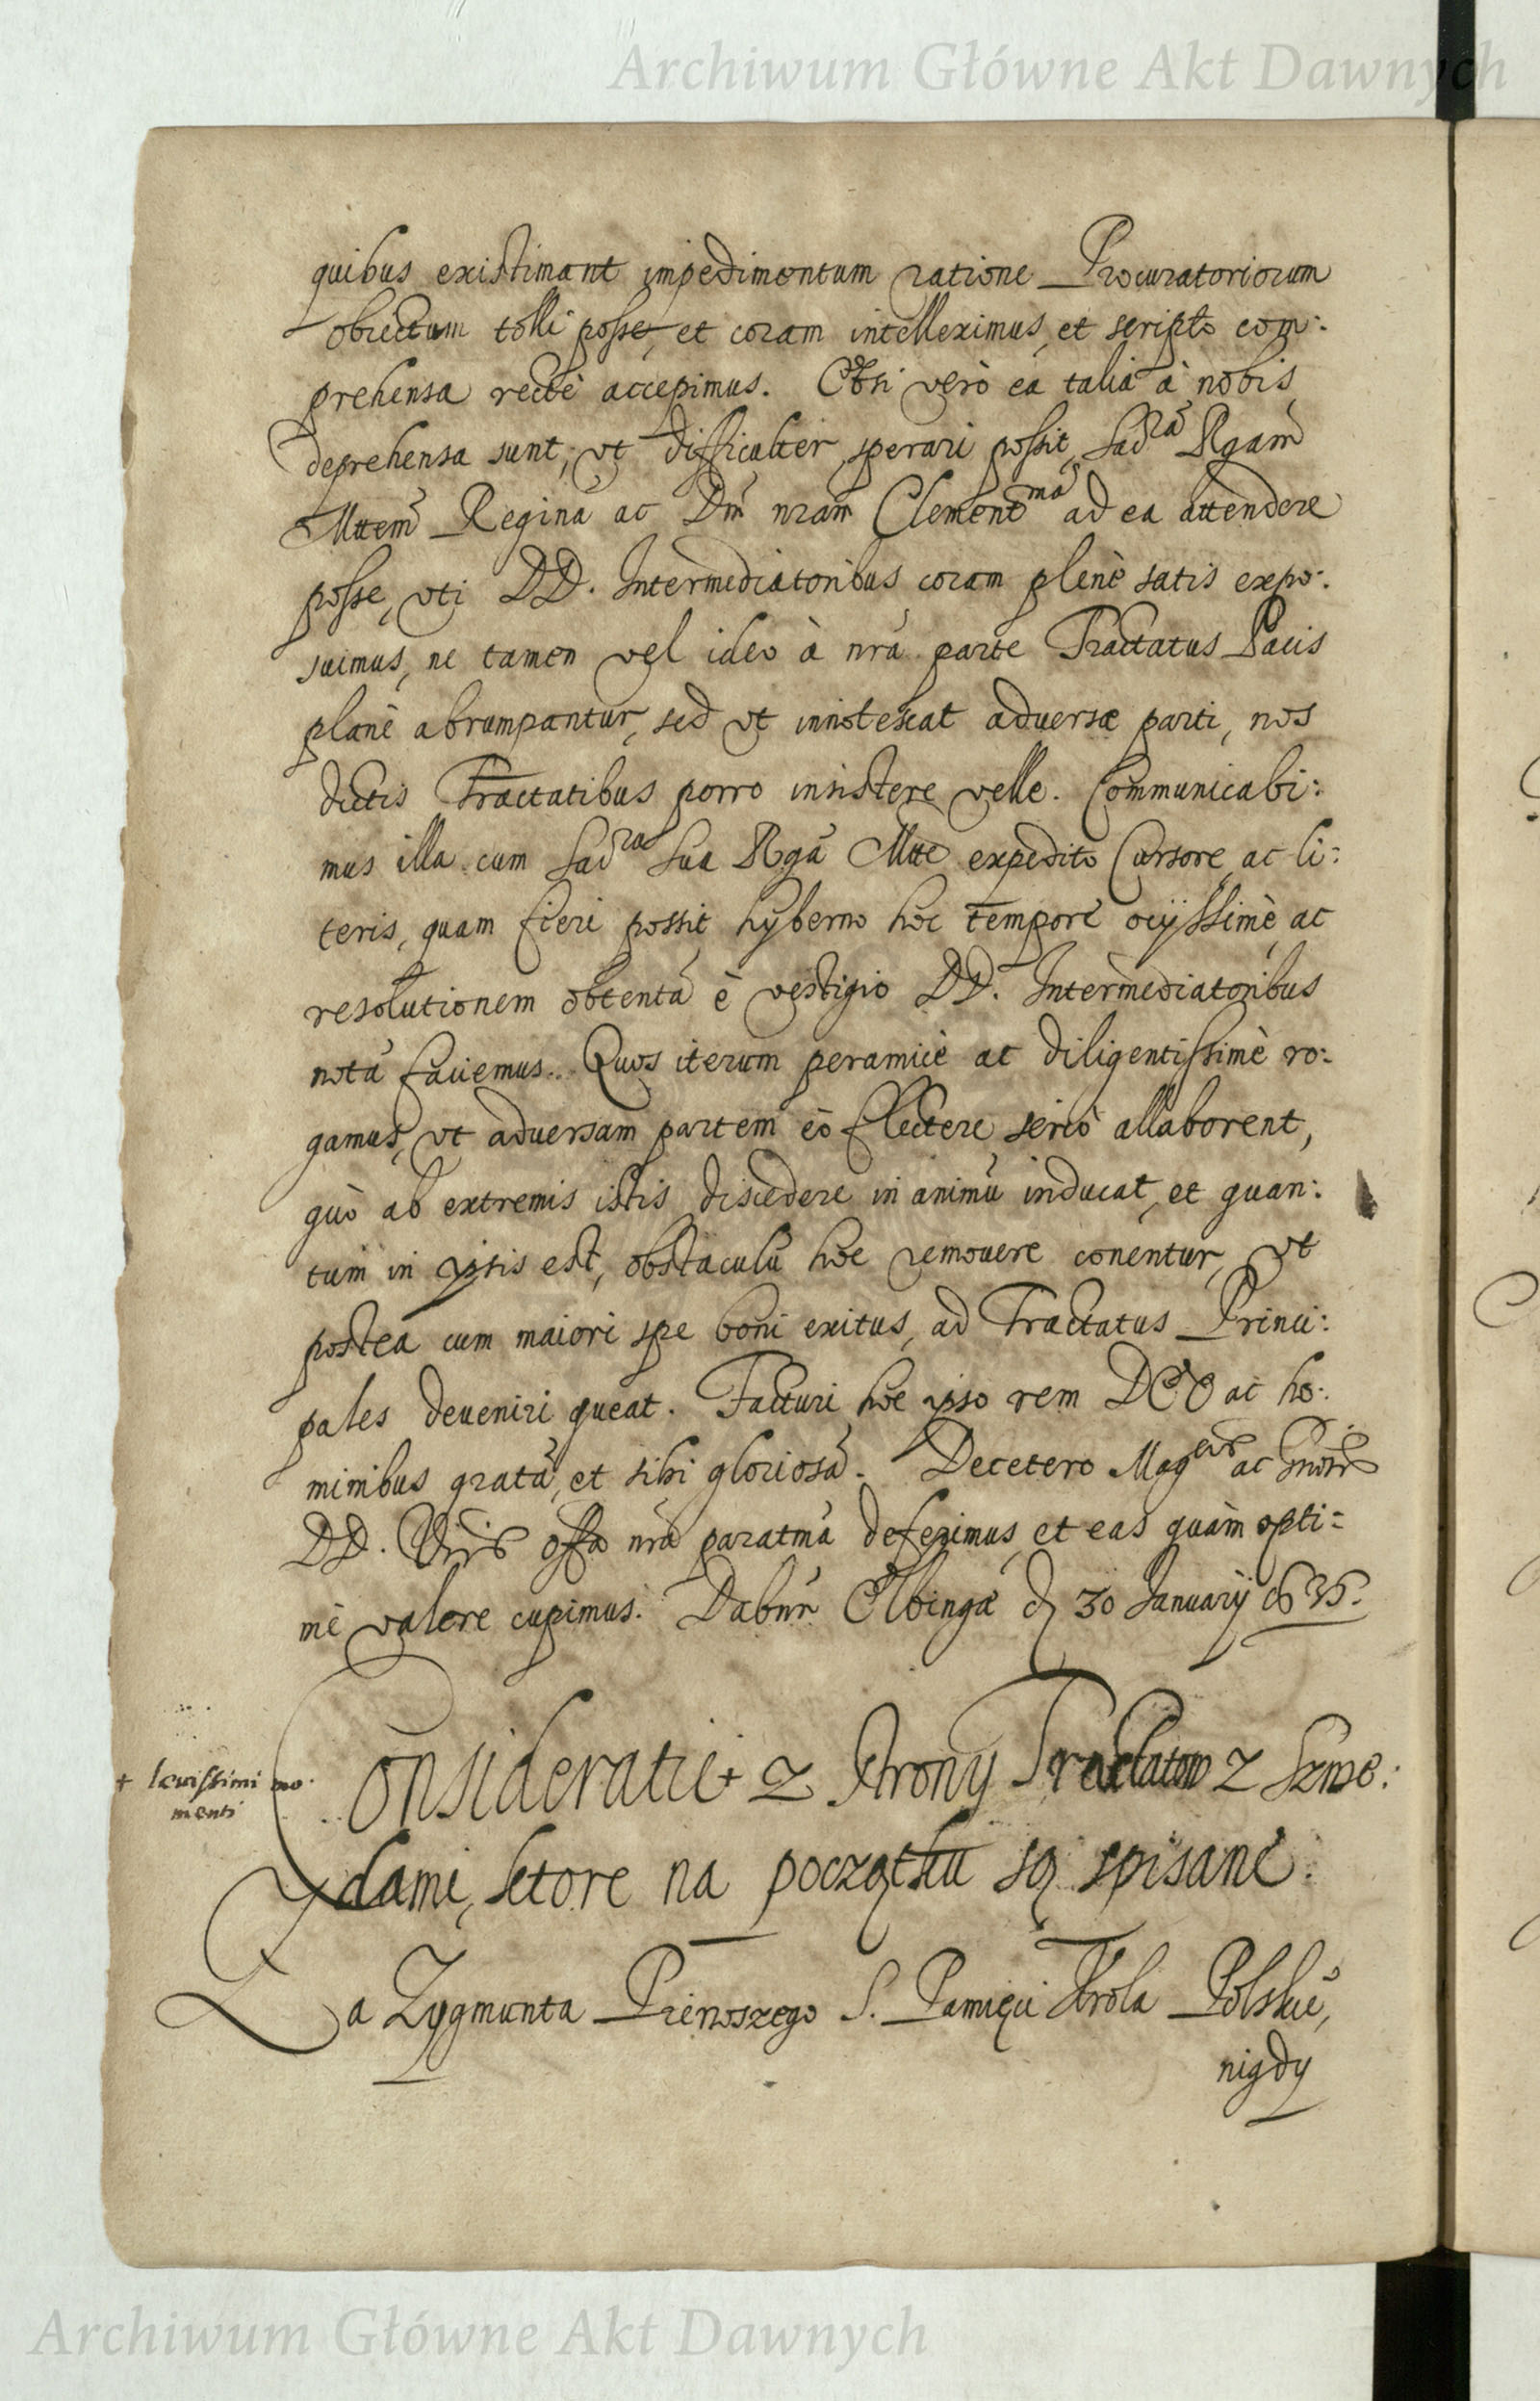 Archiwum Główne Akt Dawnych
quibus existimant impedimentum ratione Procuratoriorum
obiectum tolli posse, et coram intelleximus, et scripto com:
prehensa rectè accepimus. Etsi verò ea talia à nobis
deprehensa sunt, vt difficulter sperari possit, Sac̃ra͂ Rgam̃
Mttem̃ Reginã ac Dn̄ nram̃ Clementma͂ ad ea attendere
posse, vti DD. Intermediatoribus coram plenè satis expo:
suimus, ne tamen vel ideo à nrã parte Tractatus Pacis
planè abrumpantur, sed vt innotescat adversæ parti, nos
dictis Tractatibus porro insistere velle. Communicabi:
mus illa cum Sac̃ra Sua Rgã Mtte expedito Cursore, ac li:
teris, quam fieri possit hyberno hoc tempore ocijssimè, ac
resolutionem obtentã è vestigio DD. Intermediatoribus
notã faciemus. Quos iterum peramicè ac diligentissimè ro:
gamus, vt adversam partem eò flectere seriò allaborent,
quò ab extremis istis discedere in animũ inducat, et quan:
tum in ipsis est, obstaculũ hoc removere conentur, vt
postea cum maiori spe boni exitus, ad Tractatus Princi:
pales deveniri queat. Facturi hoc ipso rem DEO ac ho:
minibus gratã, et sibi gloriosã. Decetero Mag ac
DD. offa nrã paratmã deferimus, et eas quàm opti:
mè valere cupimus. Dabnr̃ Elbingæ d 30 Januarij 635.
+ levissimi mo:
menti
Consideratie + z strony Tractatow z Szwe:
dami, ktore na początku są spisane.
Za Zygmunta Pierwszego S. Pamięci Krola Polskie͂,
nigdy
Archiwum Główne Akt Dawnych